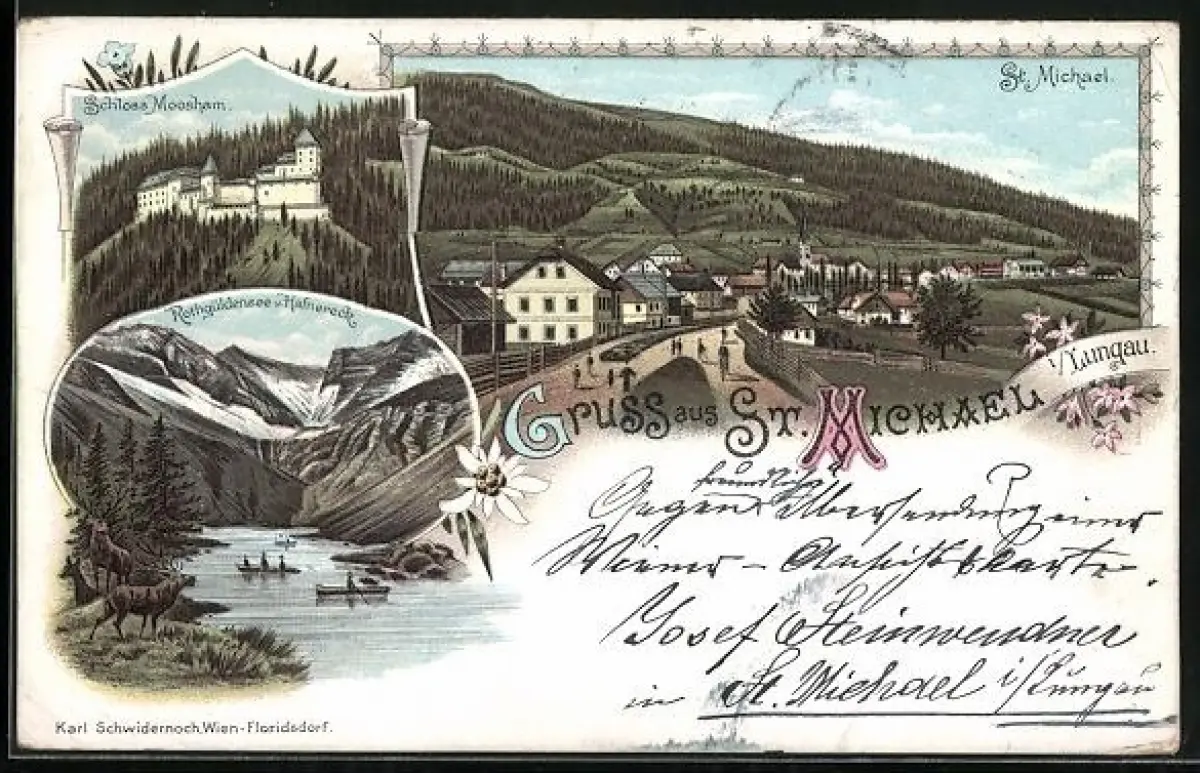 Schloss Moosham.
St. Michael.
Rothguldensee u. Hafnereck
i/Lungau.
Gruss aus St. Michael
freundliche
Gegen Übersendung einer
Wiener - Ansichtskarte.
Josef Steinwendner
in St. Michael i/Lungau
Karl Schwidernoch, Wien-Floridsdorf.